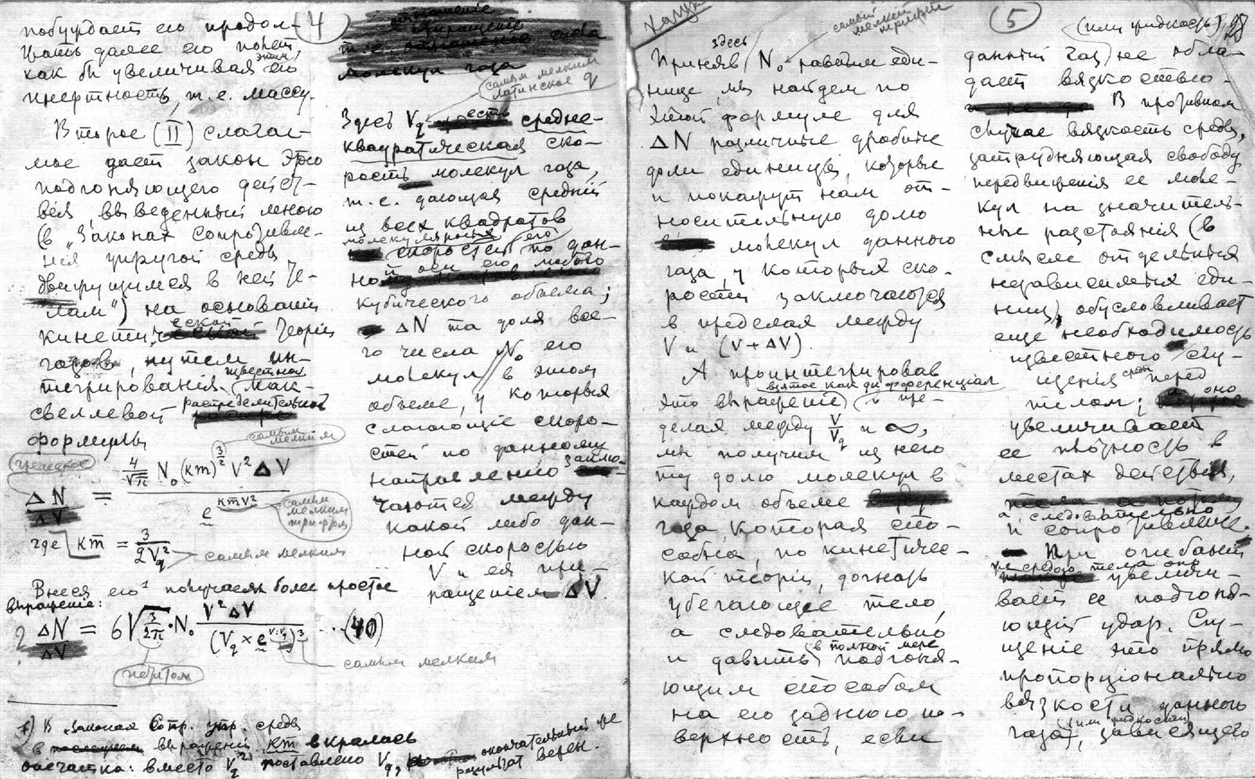 побуждает его продол-
жать далее его полет,
как бы увеличивая этим его
инертность, т.е. массу.
Второе (II) слагае-
мое дает закон этого
подгоняющего дейст-
вия, выведенный мною
(в „Законах сопротивле-
ния упругой среды
движущимся в ней те-
лам“) на основании
кинетической теории
газов, путем ин-
тегрирования известной Мак-
свелловой распределительной
формулы
ΔN/ΔV = 4/√π N₀ (km)^3/2 V² ΔV / e^kmV²
самым мелким
самым мелким шрифтом
где km = 3/2V_q²
самым мелким
Внеся его¹ получаем более простое
выражение:
? ΔN/ΔV = 6√3/2π · N₀ V² ΔV / (V_q × e^(V:V_q)²)³ ... (40)
петитом
самым мелким
1) В Законах Сопр. упр. среды
в выражении km вкралась
опечатка: вместо V_q² поставлено V_q, окончательный же
результат верен.
4
молекул газа
самым мелким
латинское q
Здесь V_q есть средне-
квадратическая ско-
рость молекул газа,
т.е. дающая средний
из всех квадратов
молекулярных его
скоростей по дан-
кубического объема;
ΔN та доля все-
го числа N₀ его
молекул в этом
объеме, у которых
слагающие скоро-
стей по данному
направлению заклю-
чаются между
какой либо дан-
ной скоростью
V и ея при-
ращением ΔV.
самый
мелкий
Приняв здесь N₀ равным еди-
нице, мы найдем по
этой формуле для
ΔN различные дробные
доли единицы, которые
и покажут нам от-
носительную долю
молекул данного
газа, у которых ско-
рости заключаются
в пределах между
V и (V + ΔV).
А проинтегрировав
взятое как дифференциал
это выражение в пре-
делах между V/V_q и ∞,
мы получим из него
ту долю молекул в
каждом объеме
газа, которая спо-
собна, по кинетичес-
кой теории, догнать
убегающее тело,
а следовательно
и давить в полной мере подгоня-
ющим способом
на его заднюю по-
верхность, если
5
(или жидкость)
данный газ не обла-
дает вязкостью.
В противном
случае вязкость среды,
затрудняющая свободу
передвижения ее моле-
кул на значитель-
ные расстояния (в
смысле отдельных
независимых еди-
ниц), обусловливает
еще необходимость
известного сгу-
щения среды перед
телом; оно
увеличивает
ее плотность в
местах действия,
а следовательно
и сопротивление
При огибании
же средой тела оно
увеличи-
вает ее подгоня-
ющий удар. Сгу-
щение это прямо
пропорционально
вязкости данного
газа (или жидкости), зависящего